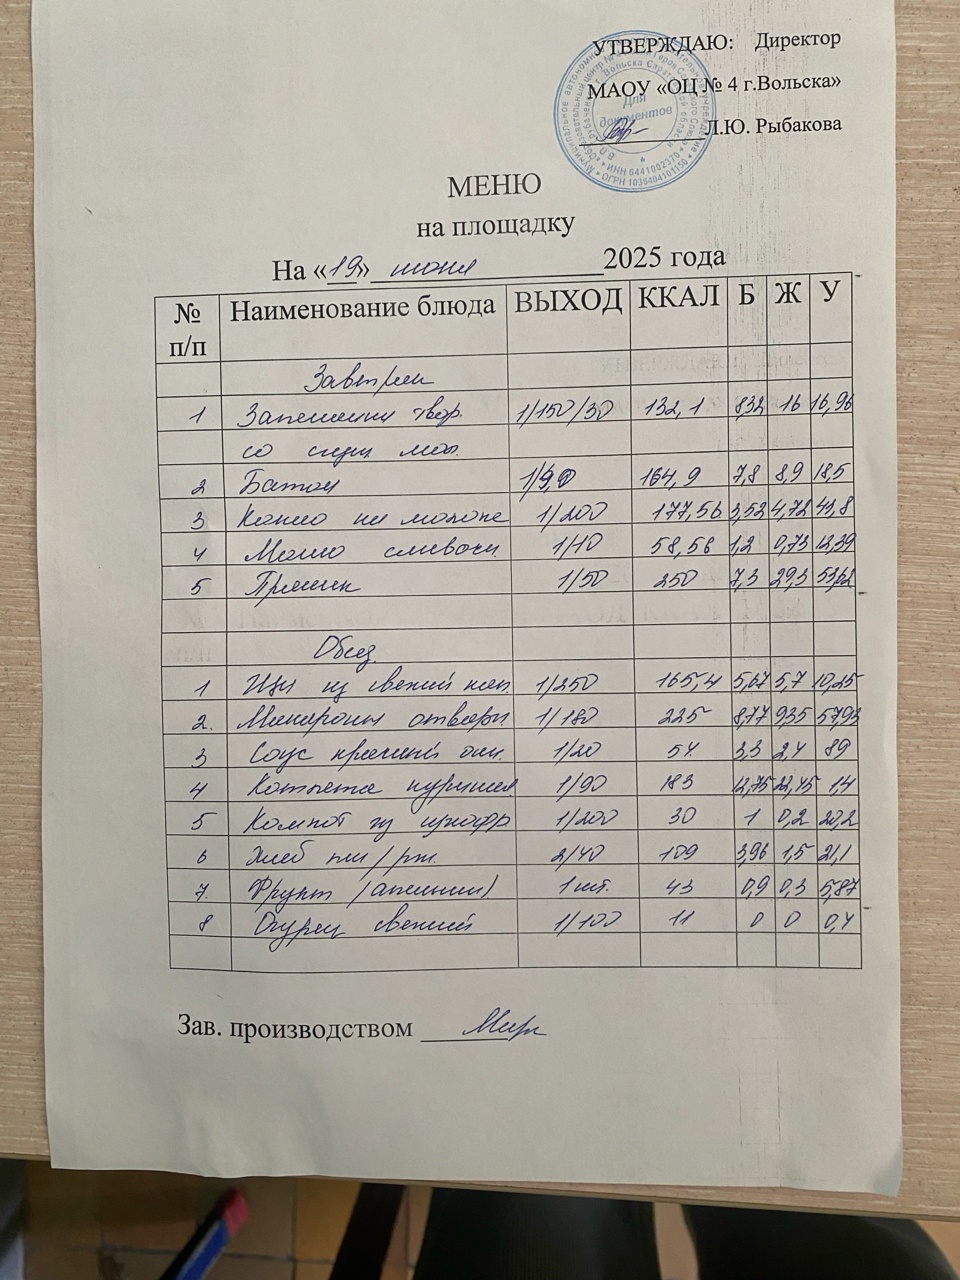 УТВЕРЖДАЮ: Директор
МАОУ «ОЦ № 4 г.Вольска»
Л.Ю. Рыбакова
Для документов
ИНН 6441002370
ОГРН 1036404101150
МЕНЮ
на площадку
На «19» июня 2025 года
№ п/п Наименование блюда ВЫХОД ККАЛ Б Ж У
Завтрак
1 Запеканка твор. 1/150/30 132,1 8,32 16 16,96
со сгущ мол.
2 Батон 164,9 7,8 8,9 18,5
3 Какао на молоке 1/200 177,56 3,52 4,72
4 Масло сливочн. 1/10 58,56 1,2 0,73
5 Пряник 1/50 250 7,3 29,3
Обед
1 Щи из свежий кап. 1/250 165,4 5,67 5,7 10,25
2. Макароны отварн 1/180 225 8,77 9,35 57,93
3 Соус красный осн. 1/20 54 3,3 2,4 89
4 Котлета куриная 1/90 183 12,75 1,4
5 Компот из сухофр 1/200 30 1 0,2 20,2
6 Хлеб пш/рж. 2/40 109 3,96 1,5 21,1
7. Фрукт (апельсин) 1 шт. 43 0,9 0,3 5,87
8 Огурец свежий 1/100 11 0 0 0,4
Зав. производством